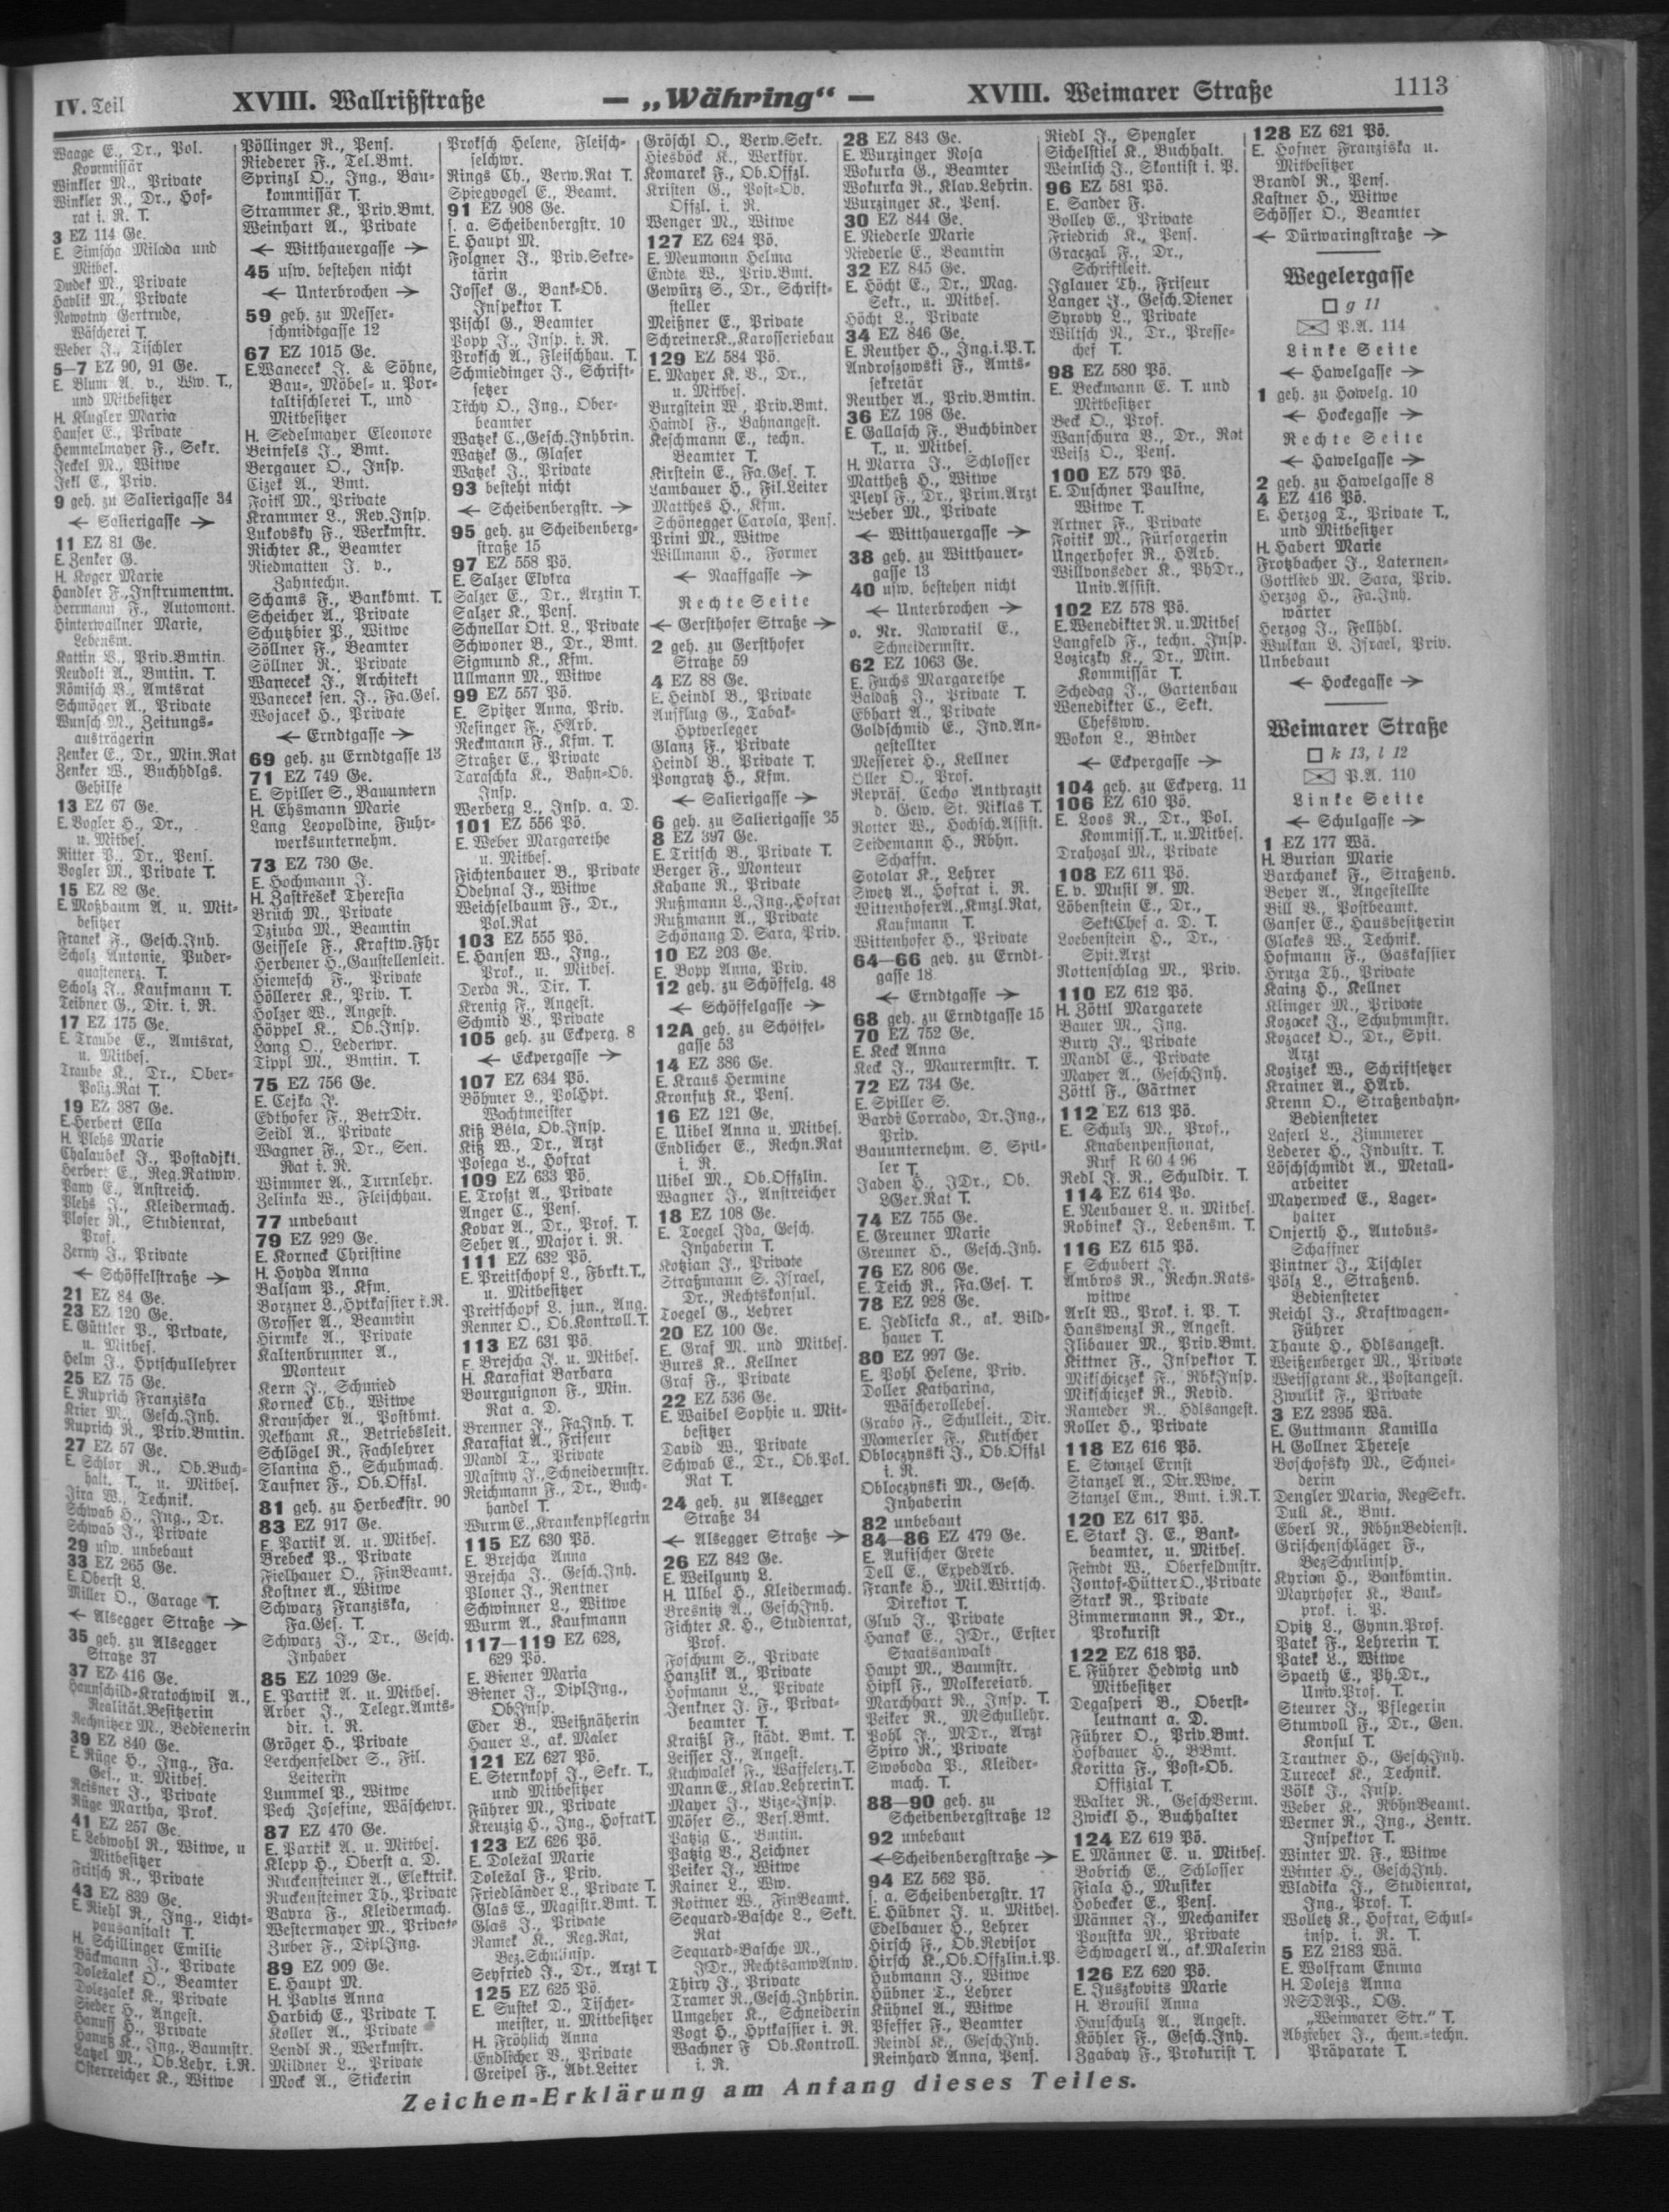 IV. Teil
XVIII. Wallrißstraße
— „Währing“ —
XVIII. Weimarer Straße
1113
Waage E., Dr., Pol.
Kommissär
Winkler M., Private
Winkler R., Dr., Hof-
rat i. R. T.
3 EZ 114 Ge.
E. Simscha Milada und
Mitbes.
Dudek M., Private
Havlik M., Private
Nowotny Gertrude,
Wäscherei T.
Weber J., Tischler
5—7 EZ 90, 91 Ge.
E. Blum A. v., Ww. T.,
und Mitbesitzer
H. Klugler Maria
Hauser E., Private
Hemmelmayer F., Sekr.
Jeckel M., Witwe
Jekl E., Priv.
9 geh. zu Salierigasse 34
← Salierigasse →
11 EZ 81 Ge.
E. Zenker G.
H. Koger Marie
Handler F., Instrumentm.
Herrmann F., Automont.
Hinterwallner Marie,
Lebensm.
Kattin V., Priv.Bmtin.
Neudolt A., Bmtin. T.
Römisch V., Amtsrat
Schmöger A., Private
Wunsch M., Zeitungs-
austrägerin
Zenker E., Dr., Min.Rat
Zenker W., Buchhdlgs.
Gehilfe
13 EZ 67 Ge.
E. Vogler H., Dr.,
u. Mitbes.
Ritter P., Dr., Pens.
Vogler M., Private T.
15 EZ 82 Ge.
E. Moßbaum A. u. Mit-
besitzer
Franek F., Gesch.Inh.
Scholz Antonie, Puder-
quastenerz. T.
Scholz J., Kaufmann T.
Teibner G., Dir. i. R.
17 EZ 175 Ge.
E. Traube E., Amtsrat,
u. Mitbes.
Traube K., Dr., Ober-
Poliz.Rat T.
19 EZ 387 Ge.
E. Herbert Ella
H. Plehs Marie
Chalaubek J., Postadjkt.
Herbert E., Reg.Ratww.
Pany E., Anstreich.
Plehs J., Kleidermach.
Ploser R., Studienrat,
Prof.
Zerny J., Private
← Schöffelstraße →
21 EZ 84 Ge.
23 EZ 120 Ge.
E. Güttler P., Private,
u. Mitbes.
Helm J., Hptschullehrer
25 EZ 75 Ge.
E. Ruprich Franziska
Krier M., Gesch.Inh.
Ruprich R., Priv.Bmtin.
27 EZ 57 Ge.
E. Schlor R., Ob.Buch-
halt. T., u. Mitbes.
Jira W., Technik.
Schwab H., Ing., Dr.
Schwab J., Private
29 usw. unbebaut
33 EZ 265 Ge.
E. Oberst L.
Miller O., Garage T.
← Alsegger Straße →
35 geh. zu Alsegger
Straße 37
37 EZ 416 Ge.
Haunschild-Kratochwil A.,
Realität.Besitzerin
Rechnitzer M., Bedienerin
39 EZ 840 Ge.
E. Rüge H., Ing., Fa.
Ges., u. Mitbes.
Reisner J., Private
Rüge Martha, Prok.
41 EZ 257 Ge.
E. Lebwohl R., Witwe, u
Mitbesitzer
Fritsch R., Private
43 EZ 839 Ge.
E. Riehl R., Ing., Licht-
pausanstalt T.
H. Schillinger Emilie
Bäckmann J., Private
Doležalek O., Beamter
Dolezalek K., Private
Sieder H., Angest.
Hanuss H., Private
Hanuß K., Ing., Baumstr.
Latzel M., Ob.Lehr. i.R.
Österreicher K., Witwe
Pöllinger R., Pens.
Riederer F., Tel.Bmt.
Sprinzl O., Ing., Bau-
kommissär T.
Strammer K., Priv.Bmt.
Weinhart A., Private
← Witthauergasse →
45 usw. bestehen nicht
← Unterbrochen →
59 geh. zu Messer-
schmidtgasse 12
67 EZ 1015 Ge.
E. Wanecek J. & Söhne,
Bau-, Möbel- u. Por-
taltischlerei T., und
Mitbesitzer
H. Sedelmayer Eleonore
Beinfels J., Bmt.
Bergauer O., Insp.
Cizek A., Bmt.
Foitl M., Private
Krammer L., Rev.Insp.
Lukovsky F., Werkmstr.
Richter K., Beamter
Riedmatten J. v.,
Zahntechn.
Schams F., Bankbmt. T.
Scheicher A., Private
Schutzbier P., Witwe
Söllner F., Beamter
Söllner R., Private
Wanecek J., Architekt
Wanecek sen. J., Fa.Ges.
Wojacek H., Private
← Erndtgasse →
69 geh. zu Erndtgasse 13
71 EZ 749 Ge.
E. Spiller S., Bauuntern
H. Ehsmann Marie
Lang Leopoldine, Fuhr-
werksunternehm.
73 EZ 730 Ge.
E. Hochmann J.
H. Zastřešek Theresia
Brüch M., Private
Dziuba M., Beamtin
Geissele F., Kraftw.Fhr
Herbener H., Gaustellenleit.
Hiemesch F., Private
Höllerer K., Priv. T.
Holzer W., Angest.
Höppel K., Ob.Insp.
Lang O., Lederwr.
Tippl M., Bmtin. T.
75 EZ 756 Ge.
E. Cejka J.
Edthofer F., BetrDir.
Seidl A., Private
Wagner F., Dr., Sen.
Rat i. R.
Wimmer A., Turnlehr.
Zelinka W., Fleischhau.
77 unbebaut
79 EZ 929 Ge.
E. Korneck Christine
H. Hoyda Anna
Balsam P., Kfm.
Borzner L., Hptkassier i.R.
Grosser A., Beamtin
Hirmke A., Private
Kaltenbrunner A.,
Monteur
Kern J., Schmied
Korneck Ch., Witwe
Krauscher A., Postbmt.
Nekham K., Betriebsleit.
Schlögel R., Fachlehrer
Slanina H., Schuhmach.
Taufner F., Ob.Offzl.
81 geh. zu Herbeckstr. 90
83 EZ 917 Ge.
E. Partik A. u. Mitbes.
Brebeck P., Private
Fielhauer O., FinBeamt.
Kostner A., Witwe
Schwarz Franziska,
Fa.Ges. T.
Schwarz J., Dr., Gesch.
Inhaber
85 EZ 1029 Ge.
E. Partik A. u. Mitbes.
Arber J., Telegr.Amts-
dir. i. R.
Gröger H., Private
Lerchenfelder S., Fil.
Leiterin
Lummel P., Witwe
Pech Josefine, Wäschewr.
87 EZ 470 Ge.
E. Partik A. u. Mitbes.
Klepp H., Oberst a. D.
Ruckensteiner A., Elektrik.
Ruckensteiner Th., Private
Vavra F., Kleidermach.
Westermayer M., Private
Zuber F., DiplIng.
89 EZ 909 Ge.
E. Haupt M.
H. Pavlis Anna
Harbich E., Private T.
Koller A., Private
Lendl R., Werkmstr.
Mildner L., Private
Mock A., Stickerin
Proksch Helene, Fleisch-
selchwr.
Rings Ch., Verw.Rat T.
Spiegvogel E., Beamt.
91 EZ 908 Ge.
s. a. Scheibenbergstr. 10
E. Haupt M.
Folgner J., Priv.Sekre-
tärin
Jossek G., Bank-Ob.
Inspektor T.
Pischl G., Beamter
Popp J., Insp. i. R.
Proksch A., Fleischhau. T.
Schmiedinger J., Schrift-
setzer
Tichy O., Ing., Ober-
beamter
Watzek C., Gesch.Inhbrin.
Watzek G., Glaser
Watzek J., Private
93 besteht nicht
← Scheibenbergstr. →
95 geh. zu Scheibenberg-
straße 15
97 EZ 558 Pö.
E. Salzer Elvira
Salzer E., Dr., Ärztin T.
Salzer K., Pens.
Schnellar Ott. L., Private
Schwoner B., Dr., Bmt.
Sigmund K., Kfm.
Ullmann M., Witwe
99 EZ 557 Pö.
E. Spitzer Anna, Priv.
Nefinger F., HArb.
Reckmann F., Kfm. T.
Straßer E., Private
Taraschka K., Bahn-Ob.
Insp.
Werberg L., Insp. a. D.
101 EZ 556 Pö.
E. Weber Margarethe
u. Mitbes.
Fichtenbauer B., Private
Odehnal J., Witwe
Weichselbaum F., Dr.,
Pol.Rat
103 EZ 555 Pö.
E. Hansen W., Ing.,
Prok., u. Mitbes.
Derda R., Dir. T.
Krenig F., Angest.
Schmid V., Private
105 geh. zu Eckperg. 8
← Eckpergasse →
107 EZ 634 Pö.
Böhmer L., PolHpt.
Wachtmeister
Kiß Béla, Ob.Insp.
Kiß W., Dr., Arzt
Posega L., Hofrat
109 EZ 633 Pö.
E. Trofzt A., Private
Anger C., Pens.
Kovar A., Dr., Prof. T.
Seher A., Major i. R.
111 EZ 632 Pö.
E. Preitschopf L., Fbrkt. T.,
u. Mitbesitzer
Preitschopf L. jun., Ang.
Renner O., Ob.Kontroll. T.
113 EZ 631 Pö.
E. Brejcha J. u. Mitbes.
H. Karafiat Barbara
Bourguignon F., Min.
Rat a. D.
Brenner J., FaInh. T.
Karafiat A., Friseur
Mandl T., Private
Mastny J., Schneidermstr.
Reichmann F., Dr., Buch-
handel T.
Wurm E., Krankenpflegrin
115 EZ 630 Pö.
E. Brejcha Anna
Brejcha J., Gesch.Inh.
Ploner J., Rentner
Schwinner L., Witwe
Wurm A., Kaufmann
117—119 EZ 628,
629 Pö.
E. Biener Maria
Biener J., DiplIng.,
ObInsp.
Eder B., Weißnäherin
Hauer L., ak. Maler
121 EZ 627 Pö.
E. Sternkopf J., Sekr. T.,
und Mitbesitzer
Führer M., Private
Kreuzig H., Ing., Hofrat T.
123 EZ 626 Pö.
E. Doležal Marie
Doležal F., Priv.
Friedländer L., Private T.
Glas E., Magistr.Bmt. T.
Glas J., Private
Ramek K., Reg.Rat,
Bez.Schulinsp.
Seyfried J., Dr., Arzt T.
125 EZ 625 Pö.
E. Sustek D., Tischer-
meister, u. Mitbesitzer
H. Fröhlich Anna
Endlicher V., Private
Greipel F., Abt.Leiter
Gröschl O., Verw.Sekr.
Hiesböck K., Werkfhr.
Komarek F., Ob.Offzl.
Kristen G., Post-Ob.
Offzl. i. R.
Wenger M., Witwe
127 EZ 624 Pö.
E. Meumann Helma
Endte W., Priv.Bmt.
Gewürz S., Dr., Schrift-
steller
Meißner E., Private
Schreiner K., Karosseriebau
129 EZ 584 Pö.
E. Mayer K. V., Dr.,
u. Mitbes.
Burgstein W., Priv.Bmt.
Haindl F., Bahnangest.
Keschmann E., techn.
Beamter T.
Kirstein E., Fa.Ges. T.
Lambauer H., Fil.Leiter
Matthes H., Kfm.
Schönegger Carola, Pens.
Prini M., Witwe
Willmann H., Former
← Naaffgasse →
Rechte Seite
← Gersthofer Straße →
2 geh. zu Gersthofer
Straße 59
4 EZ 88 Ge.
E. Heindl B., Private
Ausflug G., Tabak-
Hptverleger
Glanz F., Private
Heindl B., Private T.
Pongratz H., Kfm.
← Salierigasse →
6 geh. zu Salierigasse 35
8 EZ 397 Ge.
E. Tritsch B., Private T.
Berger F., Monteur
Kahane R., Private
Rußmann L., Ing., Hofrat
Rußmann A., Private
Schönang D. Sara, Priv.
10 EZ 203 Ge.
E. Bopp Anna, Priv.
12 geh. zu Schöffelg. 48
← Schöffelgasse →
12A geh. zu Schöffel-
gasse 53
14 EZ 386 Ge.
E. Kraus Hermine
Kronfuß K., Pens.
16 EZ 121 Ge.
E. Uibel Anna u. Mitbes.
Endlicher E., Rechn.Rat
i. R.
Uibel M., Ob.Offzlin.
Wagner J., Anstreicher
18 EZ 108 Ge.
E. Toegel Ida, Gesch.
Inhaberin T.
Kotzian J., Private
Straßmann S. Israel,
Dr., Rechtskonsul.
Toegel G., Lehrer
20 EZ 100 Ge.
E. Graf M. und Mitbes.
Bures K., Kellner
Graf F., Private
22 EZ 536 Ge.
E. Waibel Sophie u. Mit-
besitzer
David W., Private
Schwab E., Dr., Ob.Pol.
Rat T.
24 geh. zu Alsegger
Straße 34
← Alsegger Straße →
26 EZ 842 Ge.
E. Weilguny L.
H. Ulbel H., Kleidermach.
Bresnitz A., GeschInh.
Fichter K. H., Studienrat,
Prof.
Foschum S., Private
Hanzlik A., Private
Hofmann L., Private
Jenkner J. F., Privat-
beamter T.
Kraißl F., städt. Bmt. T.
Leisser J., Angest.
Kuchwalek F., Waffelerz. T.
Mann E., Klav.Lehrerin T.
Mayer J., Vize-Insp.
Möser S., Vers.Bmt.
Patzig C., Bmtin.
Patzig V., Zeichner
Peiker J., Witwe
Rainer L., Ww.
Roitner W., FinBeamt.
Sequard-Basche L., Sekt.
Rat
Sequard-Basche M.,
JDr., RechtsanwAnw.
Thiry J., Private
Tramer R., Gesch.Inhbrin.
Umgeher K., Schneiderin
Vogt H., Hptkassier i. R.
Wachner F., Ob.Kontroll.
i. R.
28 EZ 843 Ge.
E. Wurzinger Rosa
Wokurka G., Beamter
Wokurka R., Klav.Lehrin.
Wurzinger K., Pens.
30 EZ 844 Ge.
E. Niederle Marie
Niederle E., Beamtin
32 EZ 845 Ge.
E. Höcht E., Dr., Mag.
Sekr., u. Mitbes.
Höcht L., Private
34 EZ 846 Ge.
E. Reuther H., Ing.i.P.T.
Androszowski F., Amts-
sekretär
Reuther A., Priv.Bmtin.
36 EZ 198 Ge.
E. Gallasch F., Buchbinder
T., u. Mitbes.
H. Marra J., Schlosser
Mattheß H., Witwe
Pleyl F., Dr., Prim.Arzt
Weber M., Private
← Witthauergasse →
38 geh. zu Witthauer-
gasse 13
40 usw. bestehen nicht
← Unterbrochen →
o. Nr. Nawratil E.,
Schneidermstr.
62 EZ 1063 Ge.
E. Fuchs Margarethe
Baldaß J., Private T.
Ebhart A., Private
Goldschmid E., Ind.An-
gestellter
Messerer H., Kellner
Öller O., Prof.
Repräs. Cecho Anthrazit
d. Gew. St. Niklas T.
Rotter W., Hochsch.Assist.
Seidemann H., Rbhn.
Schaffn.
Sotolar K., Lehrer
Swetz A., Hofrat i. R.
Wittenhofer A., Kmzl.Rat,
Kaufmann T.
Wittenhofer H., Private
64—66 geh. zu Erndt-
gasse 18
← Erndtgasse →
68 geh. zu Erndtgasse 15
70 EZ 752 Ge.
E. Keck Anna
Keck J., Maurermstr. T.
72 EZ 734 Ge.
E. Spiller S.
Bardi Corrado, Dr.Ing.,
Priv.
Bauunternehm. S. Spil-
ler T.
Jaden H., JDr., Ob.
LGer.Rat T.
74 EZ 755 Ge.
E. Greuner Marie
Greuner H., Gesch.Inh.
76 EZ 806 Ge.
E. Teich R., Fa.Ges. T.
78 EZ 928 Ge.
E. Jedlicka K., ak. Bild-
hauer T.
80 EZ 997 Ge.
E. Pohl Helene, Priv.
Doller Katharina,
Wäscherollebes.
Grabo F., Schulleit., Dir.
Mamerler F., Kutscher
Obloczynski J., Ob.Offzl
i. R.
Obloczynski M., Gesch.
Inhaberin
82 unbebaut
84—86 EZ 479 Ge.
E. Aufischer Grete
Dell E., ExpedArb.
Franke H., Mil.Wirtsch.
Direktor T.
Glub J., Private
Hanak E., JDr., Erster
Staatsanwalt
Haupt M., Baumstr.
Hipfl F., Molkereiarb.
Marchhart R., Insp. T.
Peiker R., MSchullehr.
Pohl J., MDr., Arzt
Spiro R., Private
Swoboda P., Kleider-
mach. T.
88—90 geh. zu
Scheibenbergstraße 12
92 unbebaut
← Scheibenbergstraße →
94 EZ 562 Pö.
s. a. Scheibenbergstr. 17
E. Hübner J. u. Mitbes.
Edelbauer H., Lehrer
Hirsch F., Ob.Revisor
Hirsch K., Ob.Offzlin.i.P.
Hubmann J., Witwe
Hübner T., Lehrer
Kühnel A., Witwe
Pfeffer F., Beamter
Reindl K., GeschInh.
Reinhard Anna, Pens.
Riedl J., Spengler
Sichelstiel K., Buchhalt.
Weinlich J., Skontist i. P.
96 EZ 581 Pö.
E. Sander F.
Bolley E., Private
Friedrich K., Pens.
Graczal F., Dr.,
Schriftleit.
Iglauer Th., Friseur
Langer J., Gesch.Diener
Syrovy L., Private
Wiltsch R., Dr., Presse-
chef T.
98 EZ 580 Pö.
E. Beckmann E. T. und
Mitbesitzer
Beck O., Prof.
Wanschura V., Dr., Rat
Weisz O., Pens.
100 EZ 579 Pö.
E. Duschner Pauline,
Witwe T.
Artner F., Private
Foitik M., Fürsorgerin
Ungerhofer R., HArb.
Willvonseder K., PhDr.,
Univ.Assist.
102 EZ 578 Pö.
E. Wenedikter R. u. Mitbes
Langfeld F., techn. Insp.
Loziczky K., Dr., Min.
Kommissär T.
Schedag J., Gartenbau
Wenedikter C., Sekt.
Chefsww.
Wokon L., Binder
← Eckpergasse →
104 geh. zu Eckperg. 11
106 EZ 610 Pö.
E. Loos R., Dr., Pol.
Kommiss. T., u. Mitbes.
Drahozal M., Private
108 EZ 611 Pö.
E. v. Musil A. M.
Löbenstein E., Dr.,
SektChef a. D. T.
Loebenstein H., Dr.,
Spit.Arzt
Rottenschlag M., Priv.
110 EZ 612 Pö.
H. Zöttl Margarete
Bauer M., Ing.
Bury J., Private
Mandl E., Private
Mayer A., GeschInh.
Zöttl F., Gärtner
112 EZ 613 Pö.
E. Schulz M., Prof.,
Knabenpensionat,
Ruf R 60 4 96
Redl J. R., Schuldir. T.
114 EZ 614 Pö.
E. Neubauer L. u. Mitbes.
Robinek J., Lebensm. T.
116 EZ 615 Pö.
E. Schubert J.
Ambros R., Rechn.Rats-
witwe
Arlt W., Prok. i. P. T.
Hanswenzl R., Angest.
Jlibauer M., Priv.Bmt.
Kittner F., Inspektor T.
Mikschiczek F., RbkInsp.
Mikschiczek R., Revid.
Rameder R., Hdlsangest.
Roller H., Private
118 EZ 616 Pö.
E. Stanzel Ernst
Stanzel A., Dir.Wwe.
Stanzel Em., Bmt. i.R.T.
120 EZ 617 Pö.
E. Stark J. E., Bank-
beamter, u. Mitbes.
Feindt W., Oberfeldmstr.
Jontof-Hütter O., Private
Stark R., Private
Zimmermann R., Dr.,
Prokurist
122 EZ 618 Pö.
E. Führer Hedwig und
Mitbesitzer
Degasperi B., Oberst-
leutnant a. D.
Führer O., Priv.Bmt.
Hofbauer H., BBmt.
Koritta F., Post-Ob.
Offizial T.
Walter R., GeschVerm.
Zwickl H., Buchhalter
124 EZ 619 Pö.
E. Männer E. u. Mitbes.
Bobrich E., Schlosser
Fiala H., Musiker
Hobecker E., Pens.
Männer J., Mechaniker
Poustka M., Private
Schwagerl A., ak. Malerin
126 EZ 620 Pö.
E. Juszkovits Marie
H. Brousil Anna
Hauschulz A., Angest.
Köhler F., Gesch.Inh.
Zgabay F., Prokurist T.
128 EZ 621 Pö.
E. Hofner Franziska u.
Mitbesitzer
Brandl R., Pens.
Kastner H., Witwe
Schösser O., Beamter
← Dürwaringstraße →
Wegelergasse
g 11
P.A. 114
Linke Seite
← Hawelgasse →
1 geh. zu Hawelg. 10
← Hockegasse →
Rechte Seite
← Hawelgasse →
2 geh. zu Hawelgasse 8
4 EZ 416 Pö.
E. Herzog T., Private T.,
und Mitbesitzer
H. Habert Marie
Frotzbacher J., Laternen-
Gottlieb M. Sara, Priv.
Herzog H., Fa.Inh.
wärter
Herzog J., Fellhdl.
Wulkan L. Israel, Priv.
Unbebaut
← Hockegasse →
Weimarer Straße
k 13, l 12
P.A. 110
Linke Seite
← Schulgasse →
1 EZ 177 Wä.
H. Burian Marie
Barchanek F., Straßenb.
Beyer A., Angestellte
Bill V., Postbeamt.
Ganser E., Hausbesitzerin
Glakes W., Technik.
Hofmann F., Gaskassier
Hruza Th., Private
Kainz H., Kellner
Klinger M., Private
Kozacek J., Schuhmmstr.
Kozacek O., Dr., Spit.
Arzt
Kozizek W., Schriftsetzer
Krainer A., HArb.
Krenn O., Straßenbahn-
Bediensteter
Laferl L., Zimmerer
Lederer H., Industr. T.
Löschschmidt A., Metall-
arbeiter
Mayerweck E., Lager-
halter
Onjerth H., Autobus-
Schaffner
Pintner J., Tischler
Pölz L., Straßenb.
Bediensteter
Reichl J., Kraftwagen-
Führer
Thaute H., Hdlsangest.
Weißenberger M., Private
Weissgram K., Postangest.
Zwulik F., Private
3 EZ 2395 Wä.
E. Guttmann Kamilla
H. Gollner Therese
Boschofsky M., Schnei-
derin
Dengler Maria, RegSekr.
Dull K., Bmt.
Eberl R., RbhnBedienst.
Grischenschläger F.,
BezSchulinsp.
Kyrian H., Bankbmtin.
Mayrhofer K., Bank-
prok. i. P.
Opitz L., Gymn.Prof.
Patek F., Lehrerin T.
Patek L., Witwe
Spaeth E., Ph.Dr.,
Univ.Prof. T.
Steurer J., Pflegerin
Stumvoll F., Dr., Gen.
Konsul T.
Trautner H., GeschInh.
Turecek K., Technik.
Völk J., Insp.
Weber K., RbhnBeamt.
Werner R., Ing., Zentr.
Inspektor T.
Winter M. F., Witwe
Winter H., GeschInh.
Wladika J., Studienrat,
Ing., Prof. T.
Wolletz K., Hofrat, Schul-
insp. i. R. T.
5 EZ 2183 Wä.
E. Wolfram Emma
H. Dolejs Anna
NSDAP., OG.
„Weimarer Str.“ T.
Abzieher J., chem.-techn.
Präparate T.
Zeichen-Erklärung am Anfang dieses Teiles.